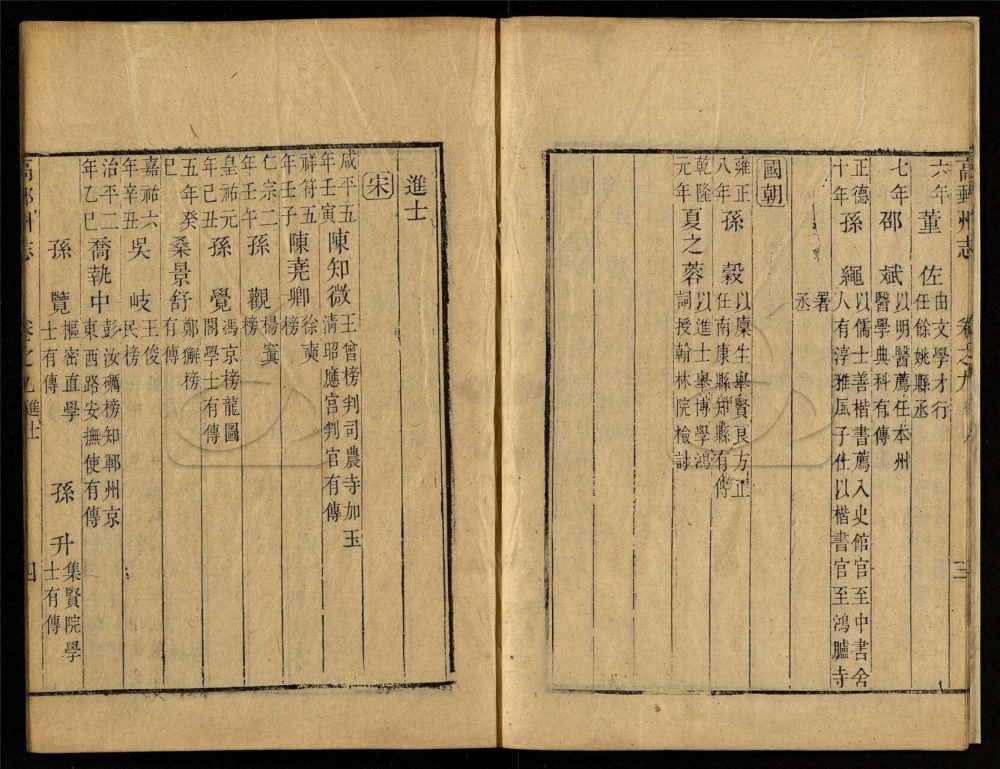 高郵州志 卷之九 三
六年 董佐 由文學才行任餘姚縣丞
七年 邵斌 以明醫薦任本州醫學典科有傳
正德十年 孫繩 以儒士善楷書薦入史館官至中書舍人有淳雅風子仕以楷書官至鴻臚寺
署丞
國朝
雍正八年 孫穀 以廩生舉賢良方正任南康縣知縣有傳
乾隆元年 夏之蓉 以進士舉博學鴻詞授翰林院檢討
進士
宋
咸平五年壬寅 陳知微 王曾榜判司農寺加玉清昭應宫判官有傳
祥符五年壬子 陳堯卿 徐奭榜
仁宗二年壬午 孫觀 楊寘榜
皇祐元年己丑 孫覺 馮京榜龍圖閣學士有傳
五年癸巳 桑景舒 鄭獬榜有傳
嘉祐六年辛丑 吳岐 王俊民榜
治平二年乙巳 喬執中 彭汝礪榜知鄆州京東西路安撫使有傳
孫覽 樞密直學士有傳 孫升 集賢院學士有傳
高郵州志 卷之九 進士 四